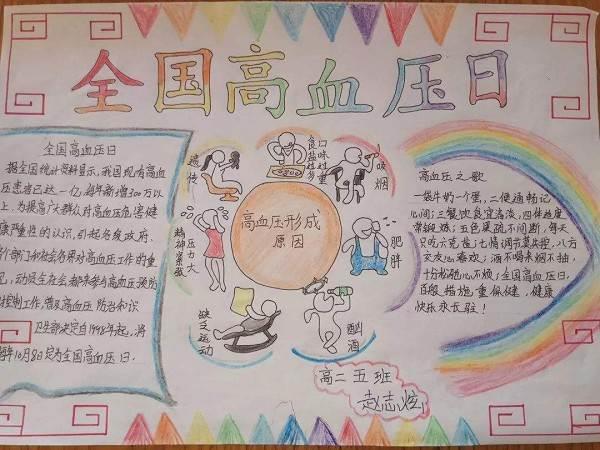 全国高血压日
全国高血压日
据全国统计资料显示,我国现有高血
压患者已达一亿,每年新增300万以
上,为提高广大群众对高血压危害健
康严重性的认识,引起各级政府、
各个部门和社会各界对高血压工作的重
视,动员全社会都来参与高血压预防
控制工作,普及高血压防治知识
卫生部决定自1998年起,将
每年10月8日定为全国高血压日.
遗传
食盐过多
口味过重
吸烟
肥胖
酗酒
缺乏运动
精神紧张
压力大
高血压形成
原因
高血压之歌
一袋牛奶一个蛋,二便通畅记
心间;三餐饮食宜清淡,四体适度
常锻炼;五色果蔬不间断,每天
只吃六克盐;七情调节莫失控,八方
交友心喜欢;酒不喝来烟不抽,
十分松弛心不烦;全国高血压日,
百般措施重保健,健康
快乐永长驻!
高二五班
赵志炫